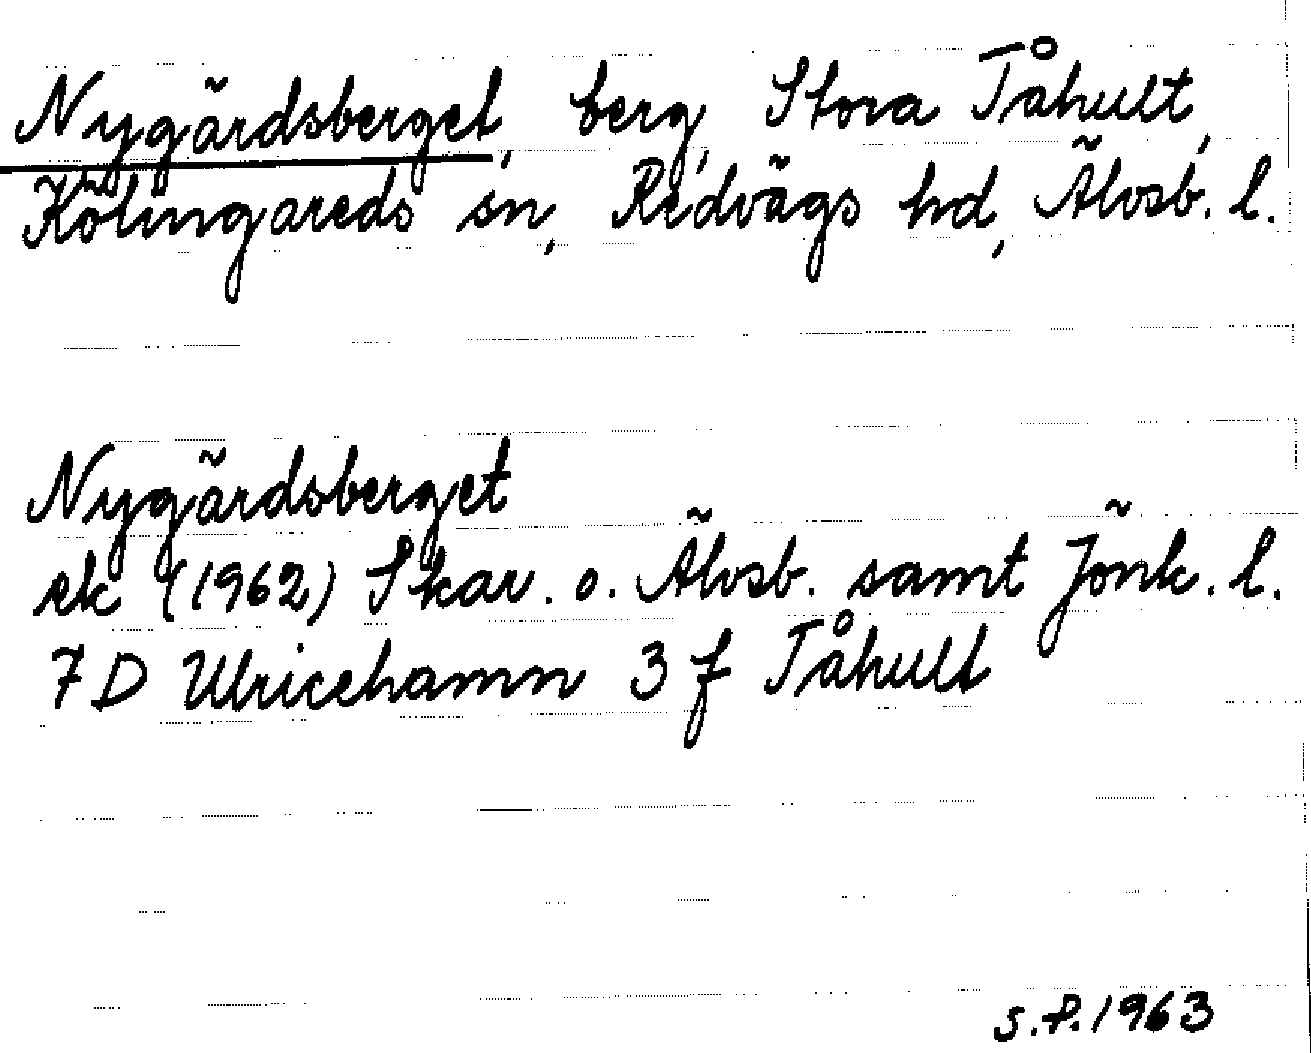 Nygärdsberget, berg, Stora Tåhult,
Kölingareds sn, Redvägs hd, Älvsb. l.
Nygärdsberget
ek (1962) Skar. o. Älvsb. samt Jönk. l.
7 D Ulricehamn 3 f Tåhult
S.P. 1963